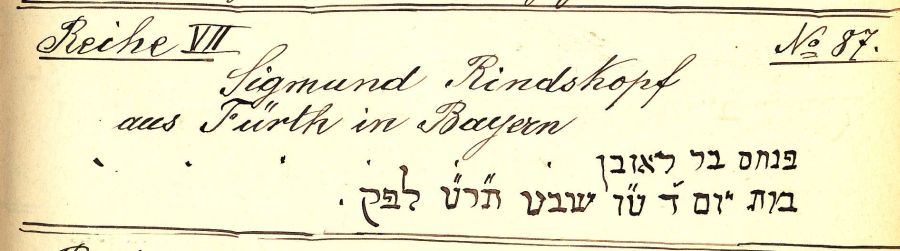 Reihe VII No 87.
Sigmund Rindskopf
aus Fürth in Bayern
פנחס בר ראובן
מת יום ד' ט"ו שבט תר"ט לפק.